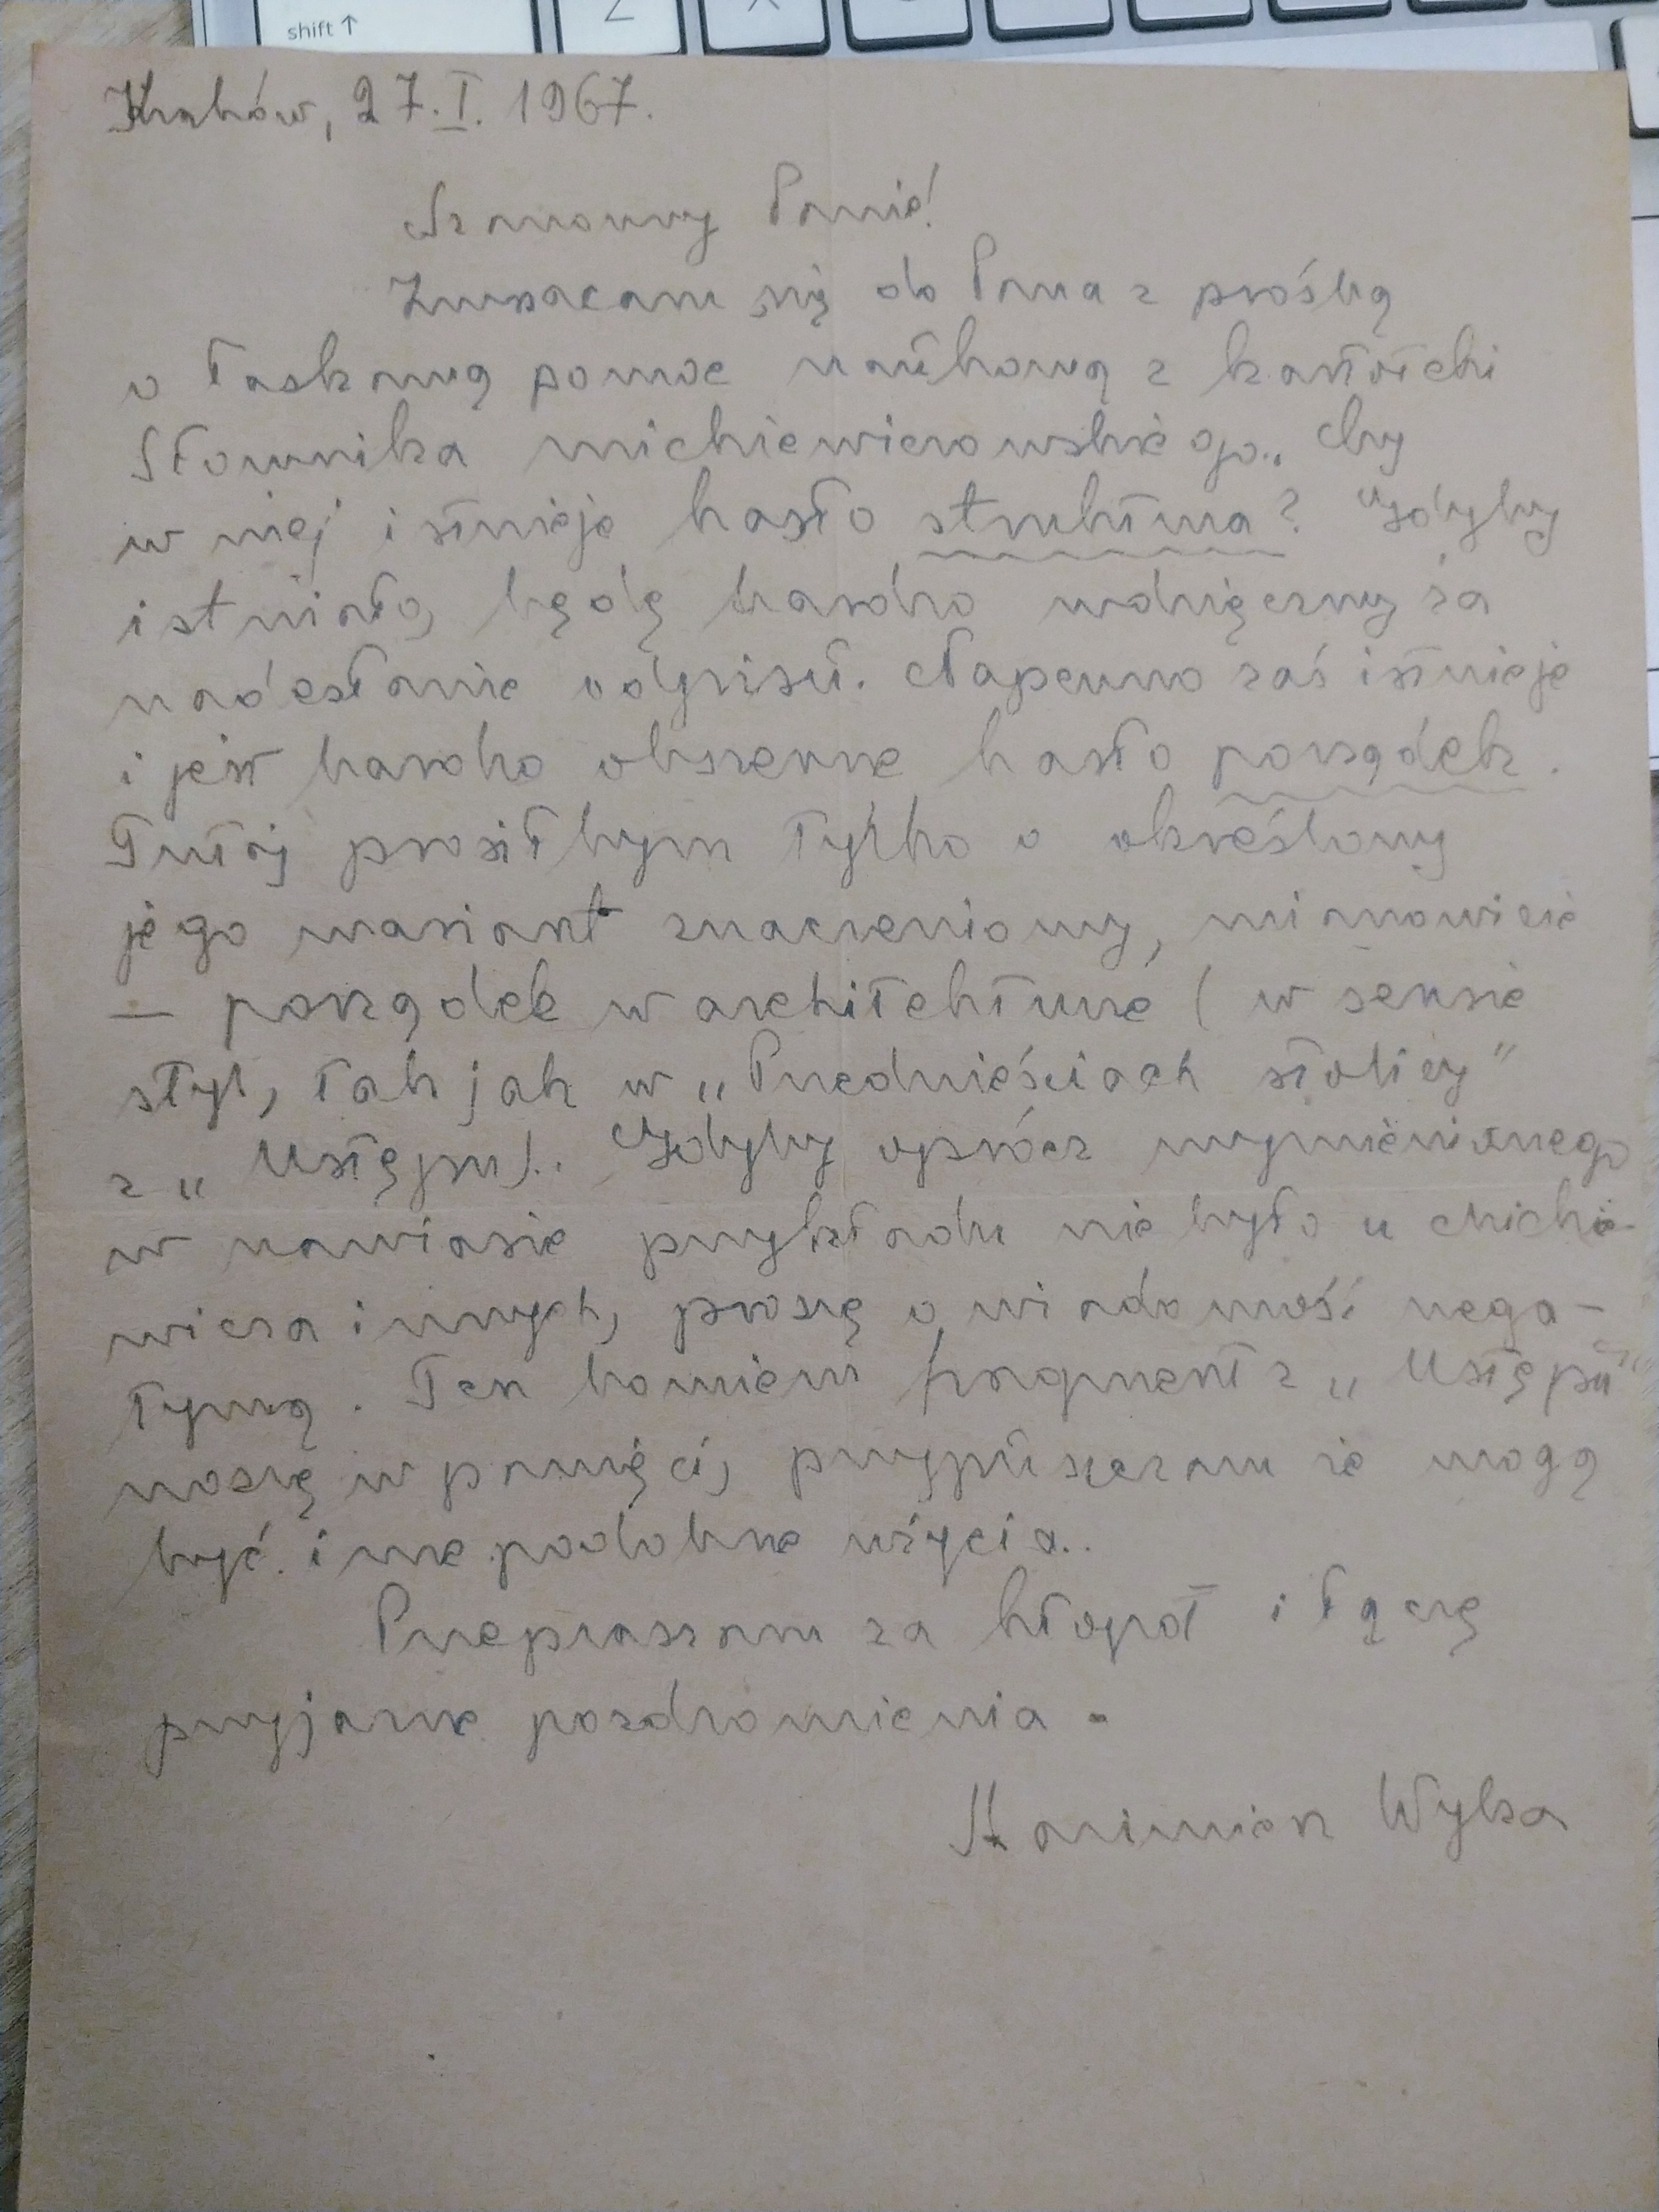 shift ↑
Kraków, 27.I. 1967.
Szanowny Panie!
Zwracam się do Pana z prośbą
o łaskawą pomoc naukową z kartoteki
Słownika mickiewiczowskiego. Czy
w niej istnieje hasło struktura? Gdyby
istniało, będę bardzo wdzięczny za
nadesłanie odpisu. Napewno zaś istnieje
i jest bardzo obszerne hasło porządek.
Tutaj prosiłbym tylko o określony
jego wariant znaczeniowy, mianowicie
— porządek w architekturze (w sensie
styl, tak jak w „Przedmieściach stolicy"
z „Ustępu). Gdyby oprócz wymienionego
w nawiasie przykładu nie było u Mickie-
wicza innych, proszę o wiadomość nega-
tywną. Ten bowiem fragment z „Ustępu"
noszę w pamięci, przypuszczam że mogą
być inne podobne użycia.
Przepraszam za kłopot i łączę
przyjazne pozdrowienia -
Kazimierz Wyka